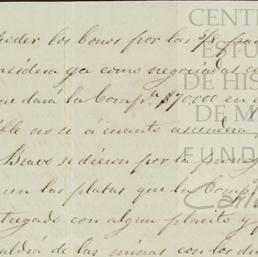 ceder los bonos por las 3/8 par
considera ya como negociadas e
que dará la Comp.ª $70.000 en
ble no se á cuanto ascendera
Bravo se dieron por la
un las platas que la Comp
tregado con algun plazo y p
aldrá de las minas con los du
CENT
ESTU
DE HIS
DE M
FUND
Carlo